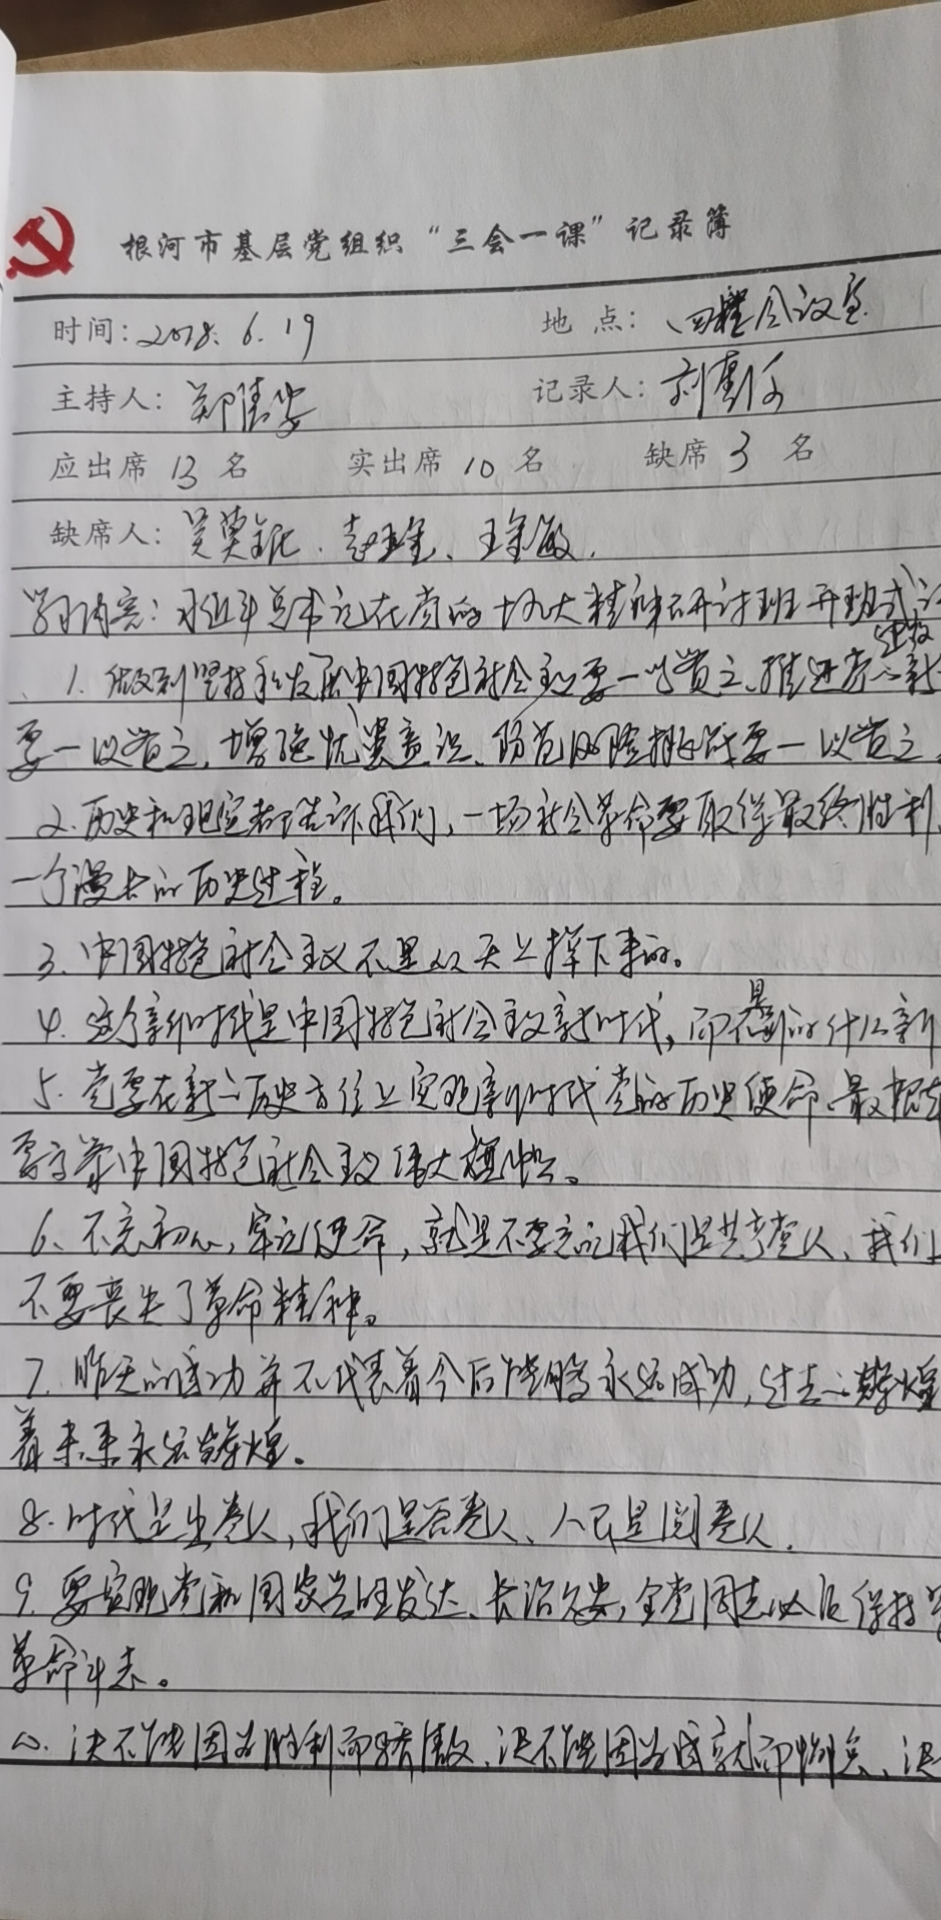 根河市基层党组织“三会一课”记录簿
时间：2018.6.19 地点：四楼会议室
主持人：郑清安 记录人：
应出席 13 名 实出席 10 名 缺席 3 名
缺席人：
学习内容：习近平总书记在党的十九大精神研讨班开班式
1. 做到坚持和发展中国特色社会主义要一以贯之、推进党的新
建设
要一以贯之，增强忧患意识、防范风险挑战要一以贯之
2. 历史和现实都告诉我们，一场社会革命要取得最终胜利，
一个漫长的历史过程。
3. 中国特色社会主义不是从天上掉下来的。
4. 这个新时代是中国特色社会主义新时代，而不是别的什么新
5. 党要在新的历史方位上实现新时代党的历史使命、最根本
要高举中国特色社会主义伟大旗帜。
6、不忘初心，牢记使命，就是不要忘记我们是共产党人、我们
不要丧失了革命精神。
7. 昨天的成功并不代表着今后能够永远成功，过去的辉煌
着未来永远辉煌。
8. 时代是出卷人，我们是答卷人、人民是阅卷人.
9. 要实现党和国家兴旺发达、长治久安，全党同志必须保持
革命斗志。
10. 决不能因为胜利而骄傲、决不能因为成就而懈怠、决